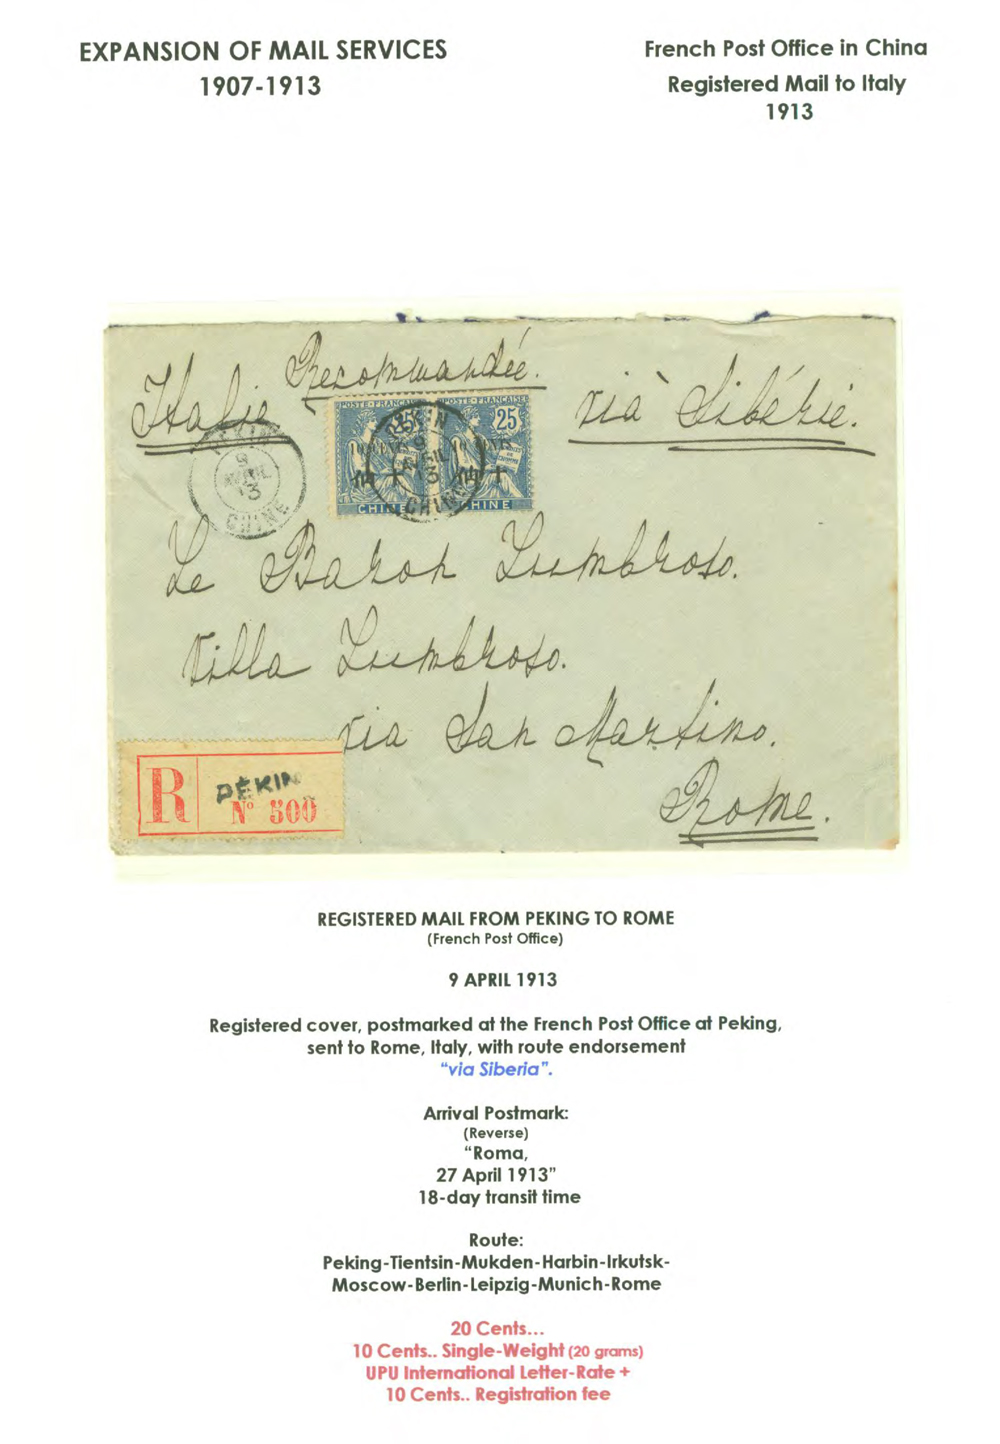 EXPANSION OF MAIL SERVICES
1907-1913
French Post Office in China
Registered Mail to Italy
1913
Italie
Recommandée.
vià Sibérie.
PEKIN
9
AVRIL
13
CHINE
POSTE FRANÇAISE
POSTE FRANÇAISE
25
25
CHINE
CHINE
PEKIN
9
AVRIL
13
CHINE
Le Baron Lumbroso.
Villa Lumbroso.
via San Martino.
Rome.
R
PÉKIN
Nº 500
REGISTERED MAIL FROM PEKING TO ROME
(French Post Office)
9 APRIL 1913
Registered cover, postmarked at the French Post Office at Peking,
sent to Rome, Italy, with route endorsement
“via Siberia”.
Arrival Postmark:
(Reverse)
“Roma,
27 April 1913”
18-day transit time
Route:
Peking-Tientsin-Mukden-Harbin-Irkutsk-
Moscow-Berlin-Leipzig-Munich-Rome
20 Cents...
10 Cents.. Single-Weight (20 grams)
UPU International Letter-Rate +
10 Cents.. Registration fee